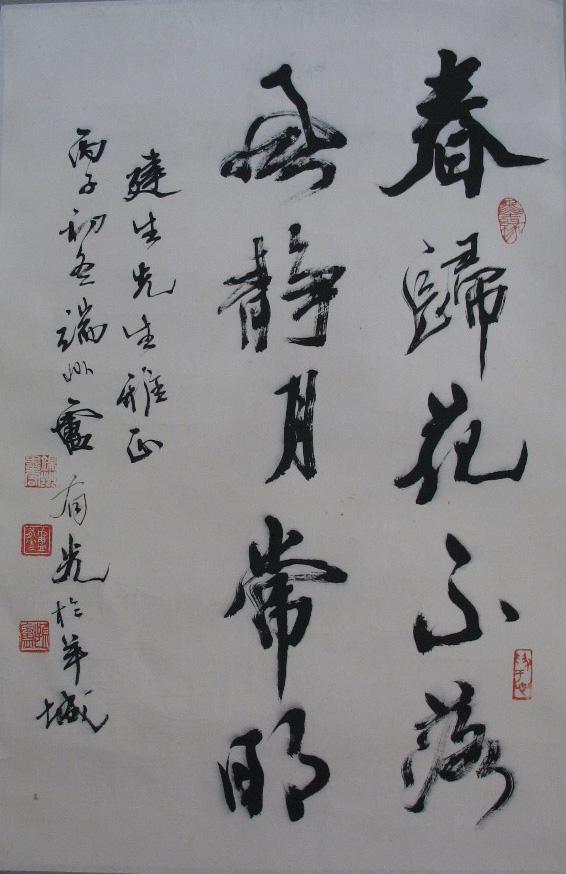 春歸花不落
風静月常明
建生先生雅正
丙子初冬端州盧有光於羊城